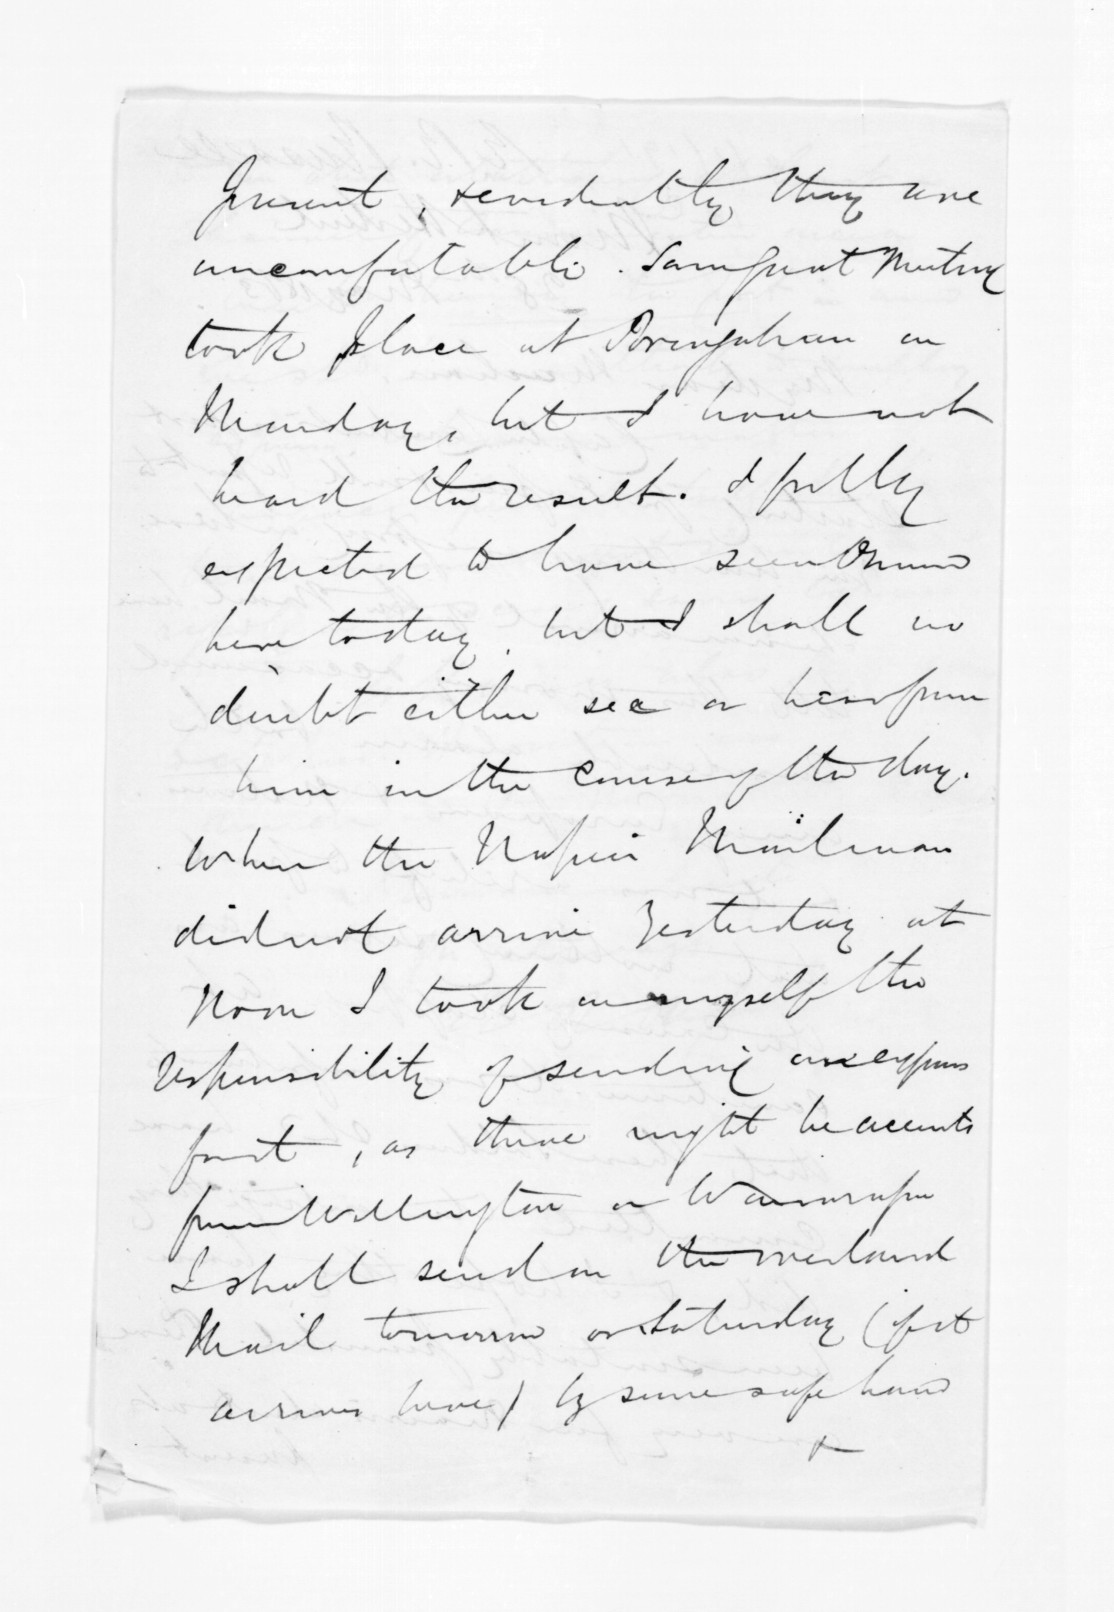 present, & evidently they are
uncomfortable. Some great Meeting
took place at Porangahau on
Monday, but I have not
heard the result. I fully
expected to have seen Ormond
here today, but I shall no
doubt either see or hear from
him in the course of the day.
When the Napier Mailman
did not arrive Yesterday at
Noon I took on myself the
responsibility of sending an express
post, as there might be accounts
from Wellington or Wairarapa
I shall send on the overland
Mail tomorrow or Saturday (if it
arrives here) by some safe hand